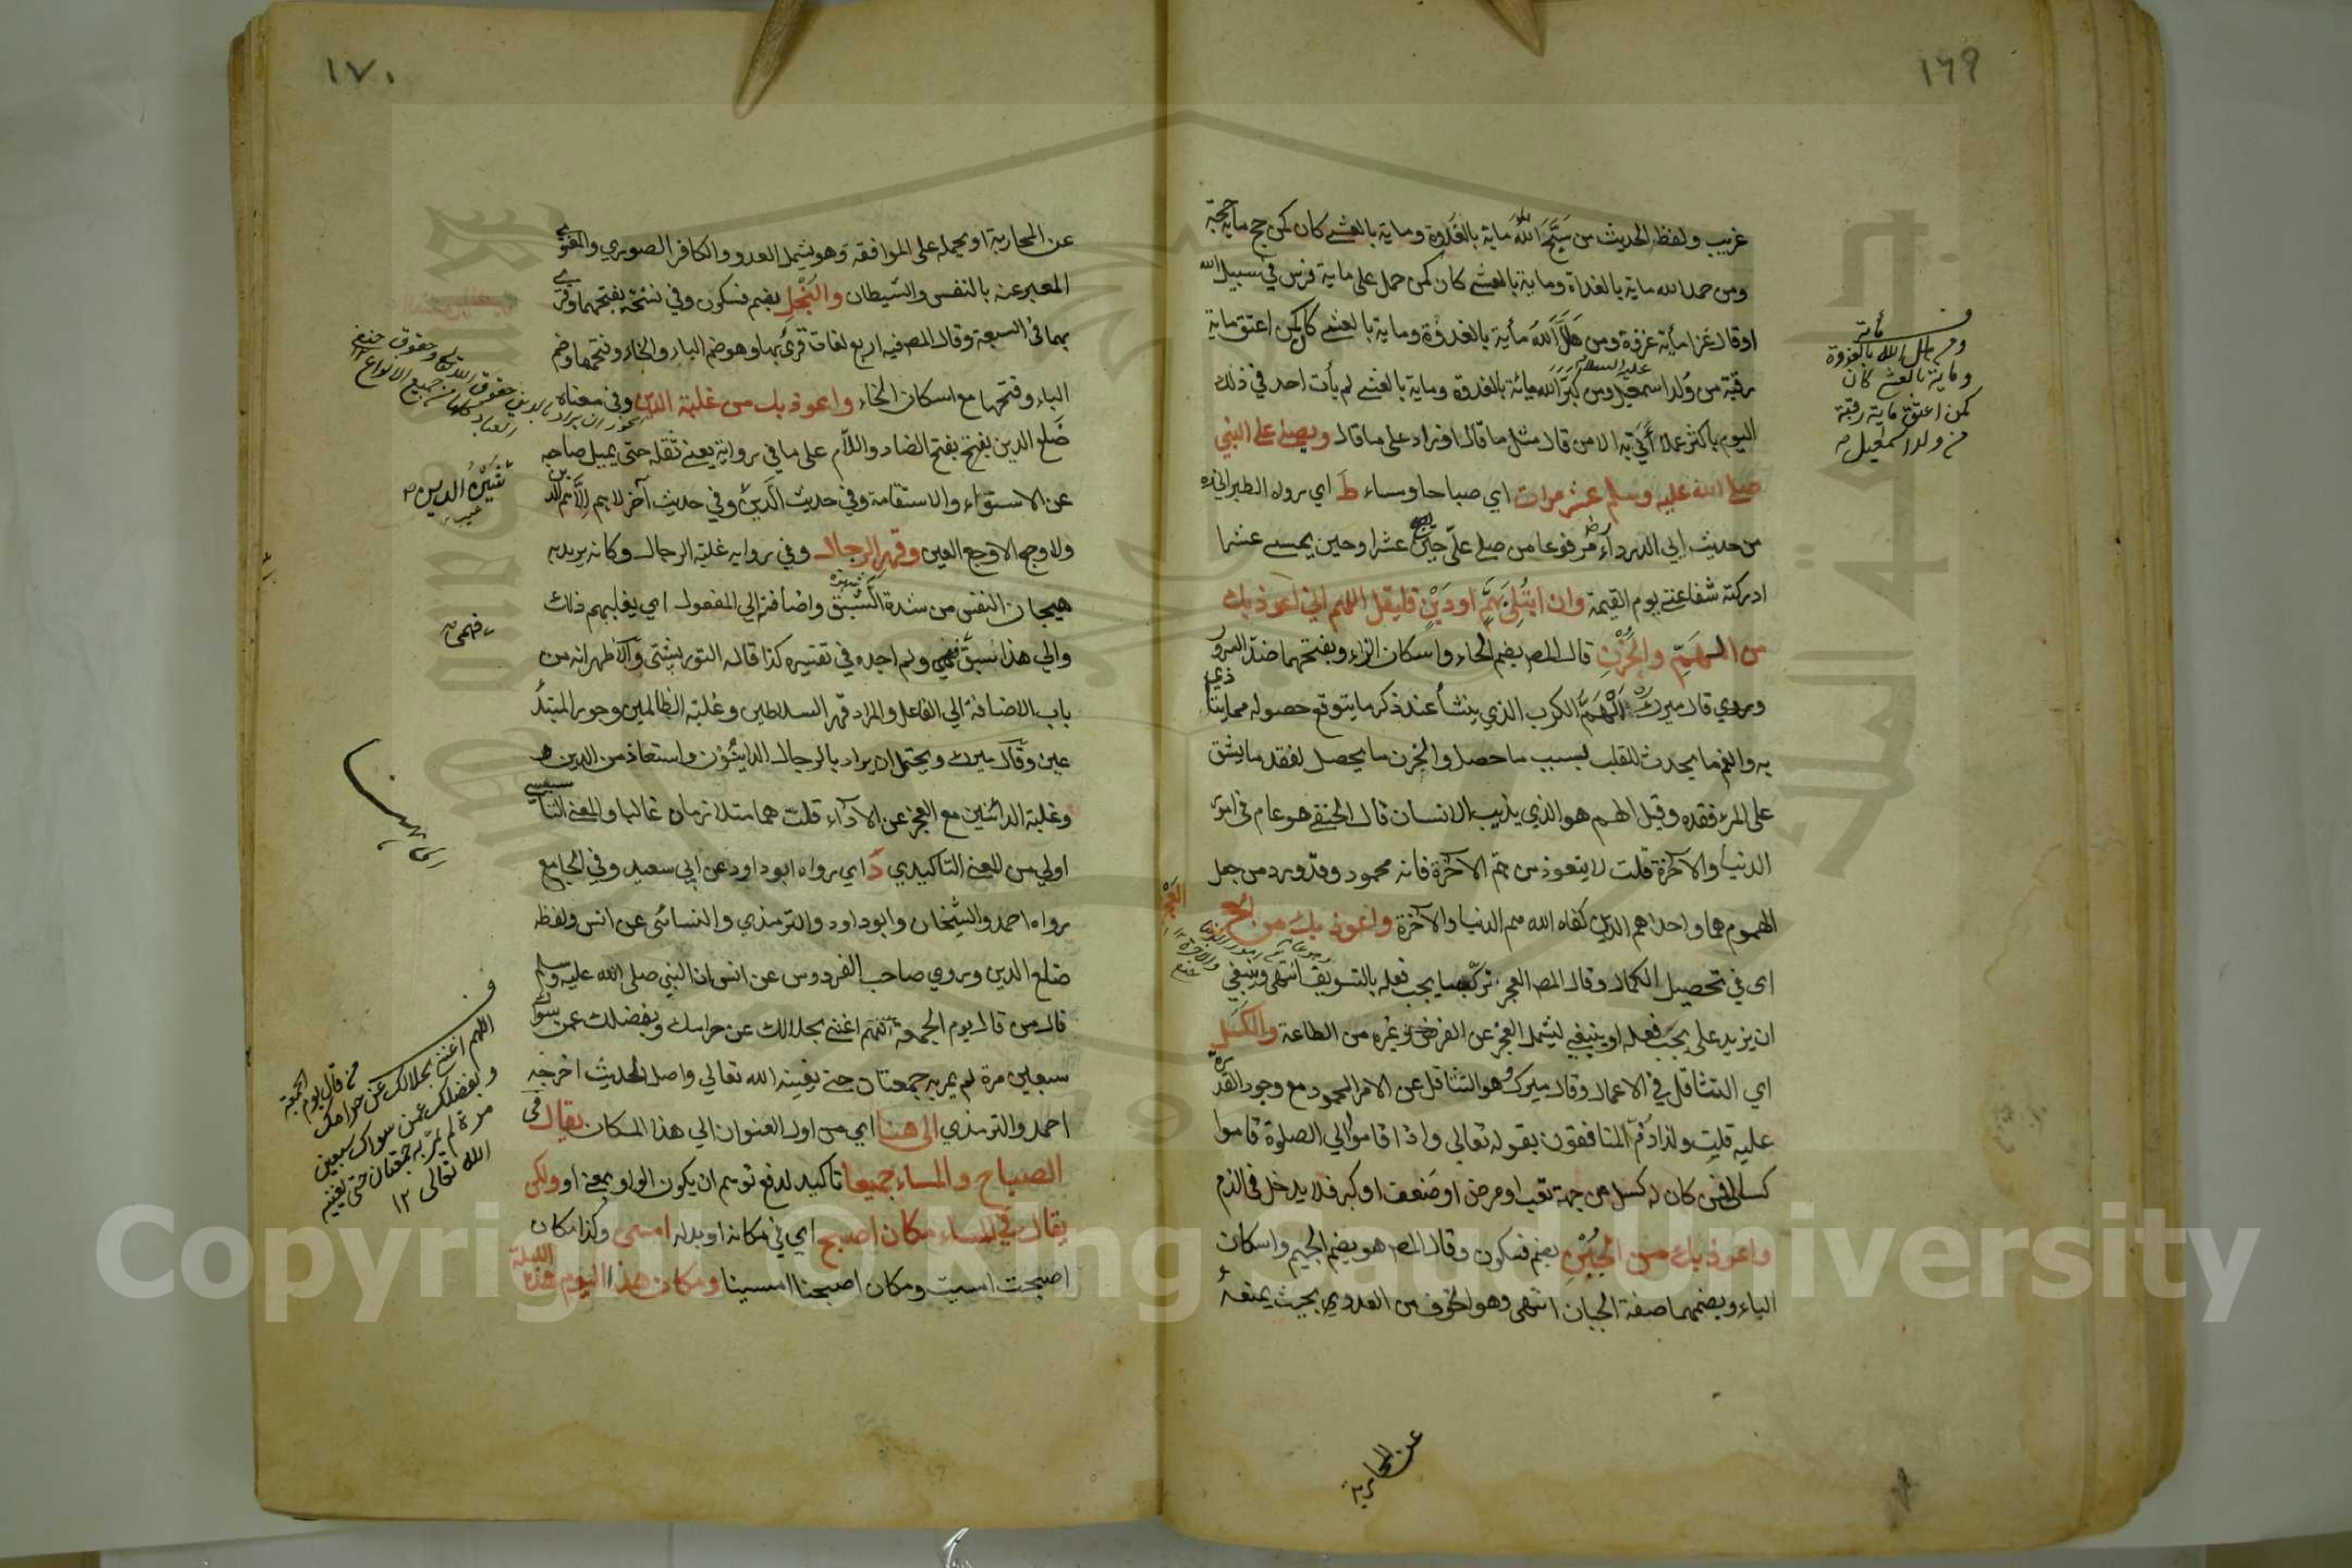 ١٦٩
غريب ولفظ الحديث من سَبَّحَ اللهَ ماية بالغَدوة وماية بالعشي كان كمن حج ماية حجة
ومن حمد الله ماية بالغداة وماية بالعشي كان كمن حمل على ماية فرس في سبيل الله
او قال غزا مأية غزوة ومن هَلَّلَ اللهَ مأية بالغدوة وماية بالعشي كان كمن اعتق ماية
رقبة من وُلد اسمعيل عليه السلام ومن كبّر الله مائة بالغدوة وماية بالعشي لم يأت احد في ذلك
اليوم باكثر عملا أُتي به الا من قال مثل ما قال او زاد على ما قال ويصلي على النبي
صلى الله عليه وسلم عشر مرات اي صباحا ومساء ط اي رواه الطبراني
من حديث ابي الدرداء مرفوعا من صلى عليّ حين يصبح عشرا وحين يمسي عشرا
ادركته شفاعتي يوم القيمة وان ابتُلي بَهمٍّ او دَيْنٍ فليقل اللهم اني اعوذ بك
من الهَمّ والحُزْنِ قال المص بضم الحاء واسكان الزاء وبفتحهما ضد السرور
وروي قال ميرك الهَمُّ الكرب الذي ينشأ عند ذكر ما يتوقع حصوله مما يتأذي
به والغم ما يحدث للقلب بسبب ما حصل والحزن ما يحصل لفقد ما يشق
على المرء فقده وقيل الهم هو الذي يذيب الانسان قال الحنفي هو عام في امور
الدنيا والآخرة قلت لا يتعوذ من هم الآخرة فانه محمود وقد ورد من جعل
الهموم هما واحدا هم الدين كفاه الله هم الدنيا والآخرة واعوذ بك من العجز
اى في تحصيل الكمال وقال المص العجز ترك ما يجب فعله بالتسويف انتهى وينبغي
ان يزيد على يجب فعله او ينبغي ليشمل العجز عن الفرض وغيره من الطاعة والكسل
اي التثاقل في الاعمال وقال ميرك هو التثاقل عن الامر المحمود مع وجود القدرة
عليه قلت ولذا ذُمّ المنافقون بقوله تعالى واذا قاموا الي الصلوة قاموا
كسالى فمن كان له كسل من جهة تعب او مرض او ضعف او كبر فلا يدخل في الذم
واعوذ بك من الجُبْنِ بضم فسكون وقال المص هو بضم الجيم واسكان
الباء وبضمهما صفة الجبان انتهى وهو الخوف من العدو بحيث يمنعه
ومن هلل الله مأية بالغدوة
وماية بالعشي كان
كمن اعتق ماية رقبة
من ولد اسمعيل
عن المحاربة
١٧٠
عن المحاربة او يحمله على الموافقة وهو يشمل العدو والكافر الصوري والمعنوي
المعبر عنه بالنفس والشيطان والبُخْلِ بضم فسكون وفي نسخة بفتحهما وقرئ
بهما في السبعة وقال المص فيه اربع لغات قرئ بها وهو ضم الباء والخاء وفتحهما وضم
الباء وفتحها مع اسكان الخاء واعوذ بك من غلبة الدين وفي معناه
ضَلع الدين بفتح الضاد واللام على ما في رواية يعني ثقله حتى يميل صاحبه
عن الاستواء والاستقامة وفي حديث آخر لا هم الا هم الدين
ولا وجع الا وجع العين وقهر الرجال وفي رواية غلبة الرجال وكانه يريد به
هيجان النفس من شدة الشبق واضافته الي المفعول اي يغلبهم ذلك
والي هذا سبق فهمي ولم اجده في تفسيره كذا قاله التوربشتي والاظهر انه من
باب الاضافة الي الفاعل والمراد قهر السلاطين وغلبة الظالمين وجور المبتدعين
وقال ميرك ويحتمل ان يراد بالرجال الدائنون واستعاذ من الدين
وغلبة الدائنين مع العجز عن الاداء قلت هما متلازمان غالبا والمعني التاسيسي
اولي من المعنى التاكيدي د اي رواه ابو داود عن ابي سعيد وفي الجامع
رواه احمد والشيخان وابو داود والترمذي والنسائي عن انس ولفظه
ضلع الدين وروي صاحب الفردوس عن انس ان النبي صلى الله عليه وسلم
قال من قال يوم الجمعة اللهم اغنني بحلالك عن حرامك وبفضلك عمن سواك
سبعين مرة لم يمر به جمعتان حتى يغنيه الله تعالي واصل الحديث اخرجه
احمد والترمذي الى هنا اي من اول العنوان الي هذا المكان يقال في
الصباح والمساء جميعا تاكيد لدفع توهم ان يكون الواو بمعنى او ولكن
يقال في المساء مكان اصبح اي في مكانه او بدله امسى وكذا مكان
اصبحت امسيت ومكان اصبحنا امسينا ومكان هذا اليوم هذه الليلة
فهمي
من قال يوم الجمعة
اللهم اغنني بحلالك عن حرامك
وبفضلك عمن سواك سبعين
مرة لم يمر به جمعتان حتى يغنيه
الله تعالى ١٢
Copyright © King Saud University